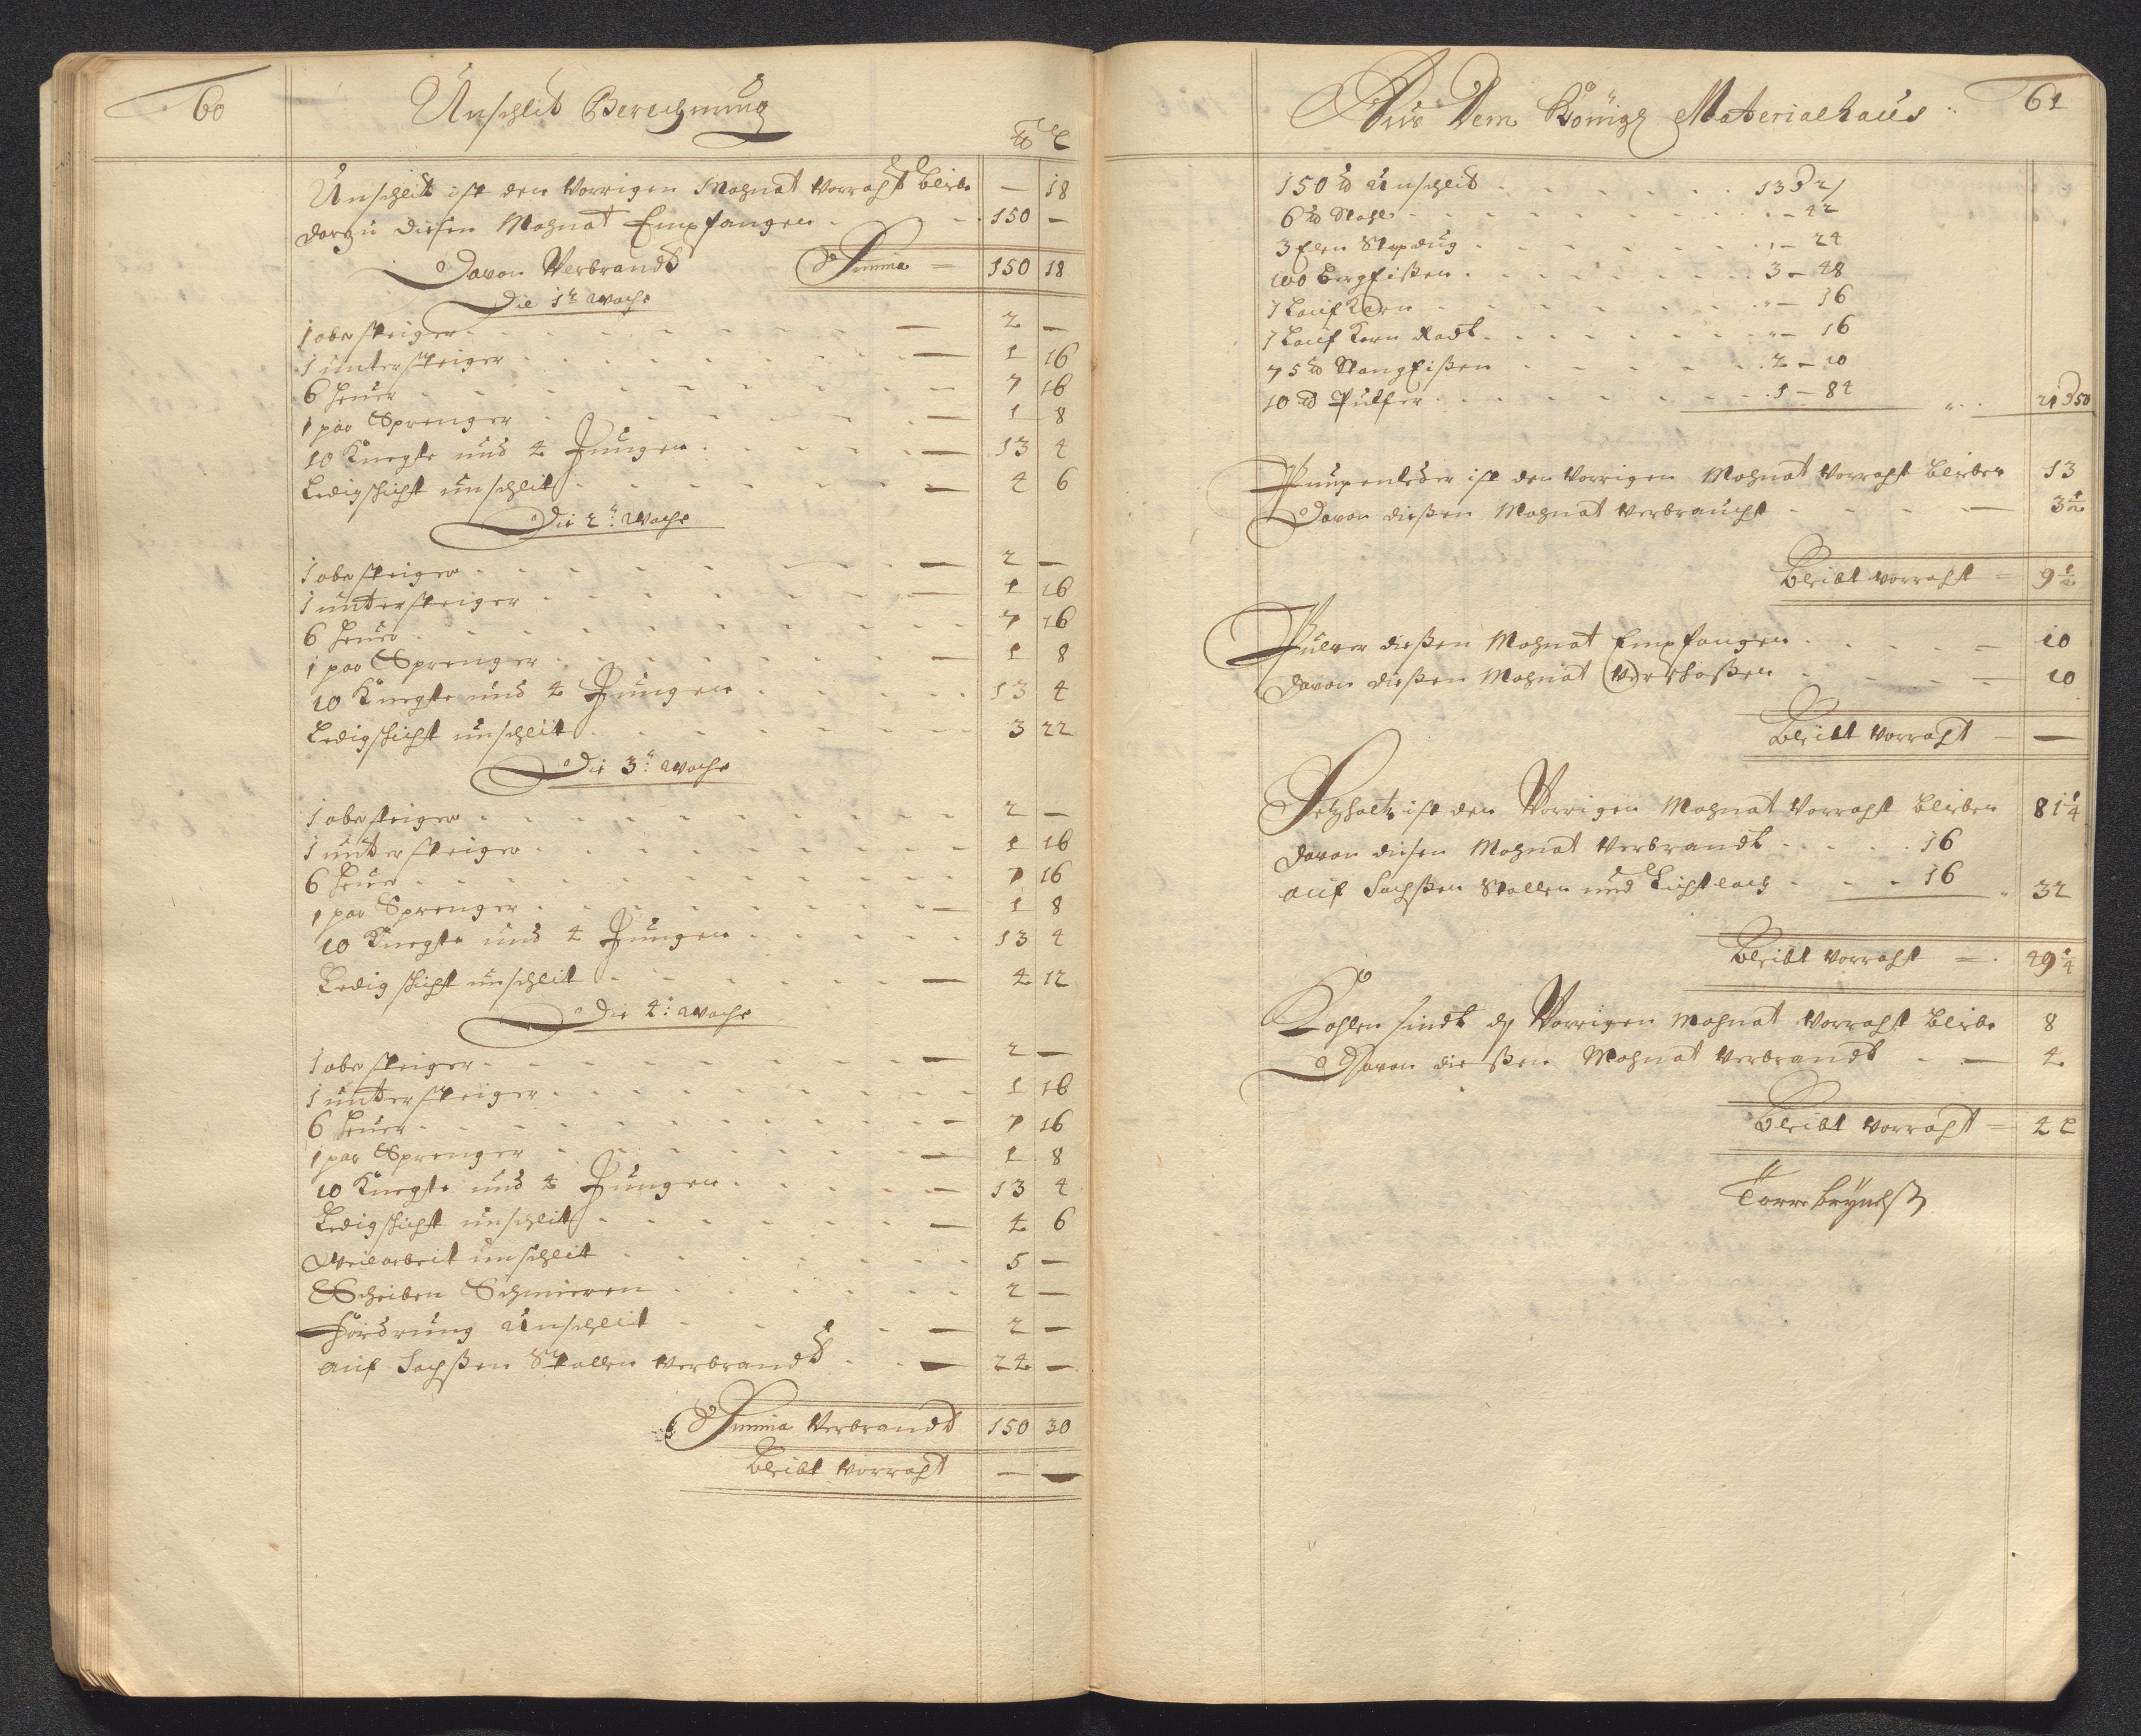 60
Unschlit Berechnung
℔ L
Unschleit ist den Vorrigen Mohnat Vorraht bleibe — 18
dorzu diesen Mohnat Empfangen 150 —
Davon Verbrandt Summa = 150 18
Die 1te Woche
1 obersteiger 2 —
1 untersteiger 1 16
6 heuer 7 16
1 par Sprenger 1 8
10 Knegte und 4 Jungen 13 4
Ledigschicht unschlit 4 6
Die 2te Woche
1 obersteiger 2 —
1 untersteiger 1 16
6 heuer 7 16
1 par Sprenger 1 8
10 Knegte und 4 Jungen 13 4
Ledigschicht unschleit 3 22
Die 3te Woche
1 obersteiger 2 —
1 untersteiger 1 16
6 heuer 7 16
1 par Sprenger 1 8
10 Knegte und 4 Jungen 13 4
Ledig schicht unschleit 4 12
Die 4te Woche
1 obersteiger 2 —
1 untersteiger 1 16
6 heuer 7 16
1 par Sprenger 1 8
10 Knegte und 4 Jungen 13 4
Ledigschicht unschleit 4 6
Weilarbeit unschleit 5 —
Scheiben Schmieren 2 —
fördrung Unschleit 2 —
auf Sachsßen Stollen Verbrandt 24 —
Summa Verbrandt 150 30
bleibt Vorraht — —
61
Aus Dem Königl Materialhaus
150 ℔ Unschleit 13
6 ℔ Stahl — 42
3 Elen Stopdug — 24
100 bergEißen 3 — 48
1 Lauf Karn — 16
1 Lauf Karn Radt — 16
75 ℔ StangEißen 2 — 10
10 ℔ Pulfer 1 — 84 21 50
Pumpenleder ist den Vorrigen Mohnat Vorraht bleiben 13
Davon dießen Mohnat Verbraucht 3½
bleibt Vorraht = 9½
Pulver dießen Mohnat Empfangen 10
davon dießen Mohnat Verschoßen 10
bleibt Vorraht —
Setzholtz ist den Vorrigen Mohnat Vorraht bleiben 81¼
davon diesen Mohnat Verbrandt 16
auf Sachsßen Stollen und Lichtloch 16 32
bleibt Vorraht = 49¼
Kohlen sindt d Vorrigen Mohnat Vorraht bleibe 8
Davon dießen Mohnat Verbrandt 4
bleibt Vorraht = 4 L
Torre brÿnelß